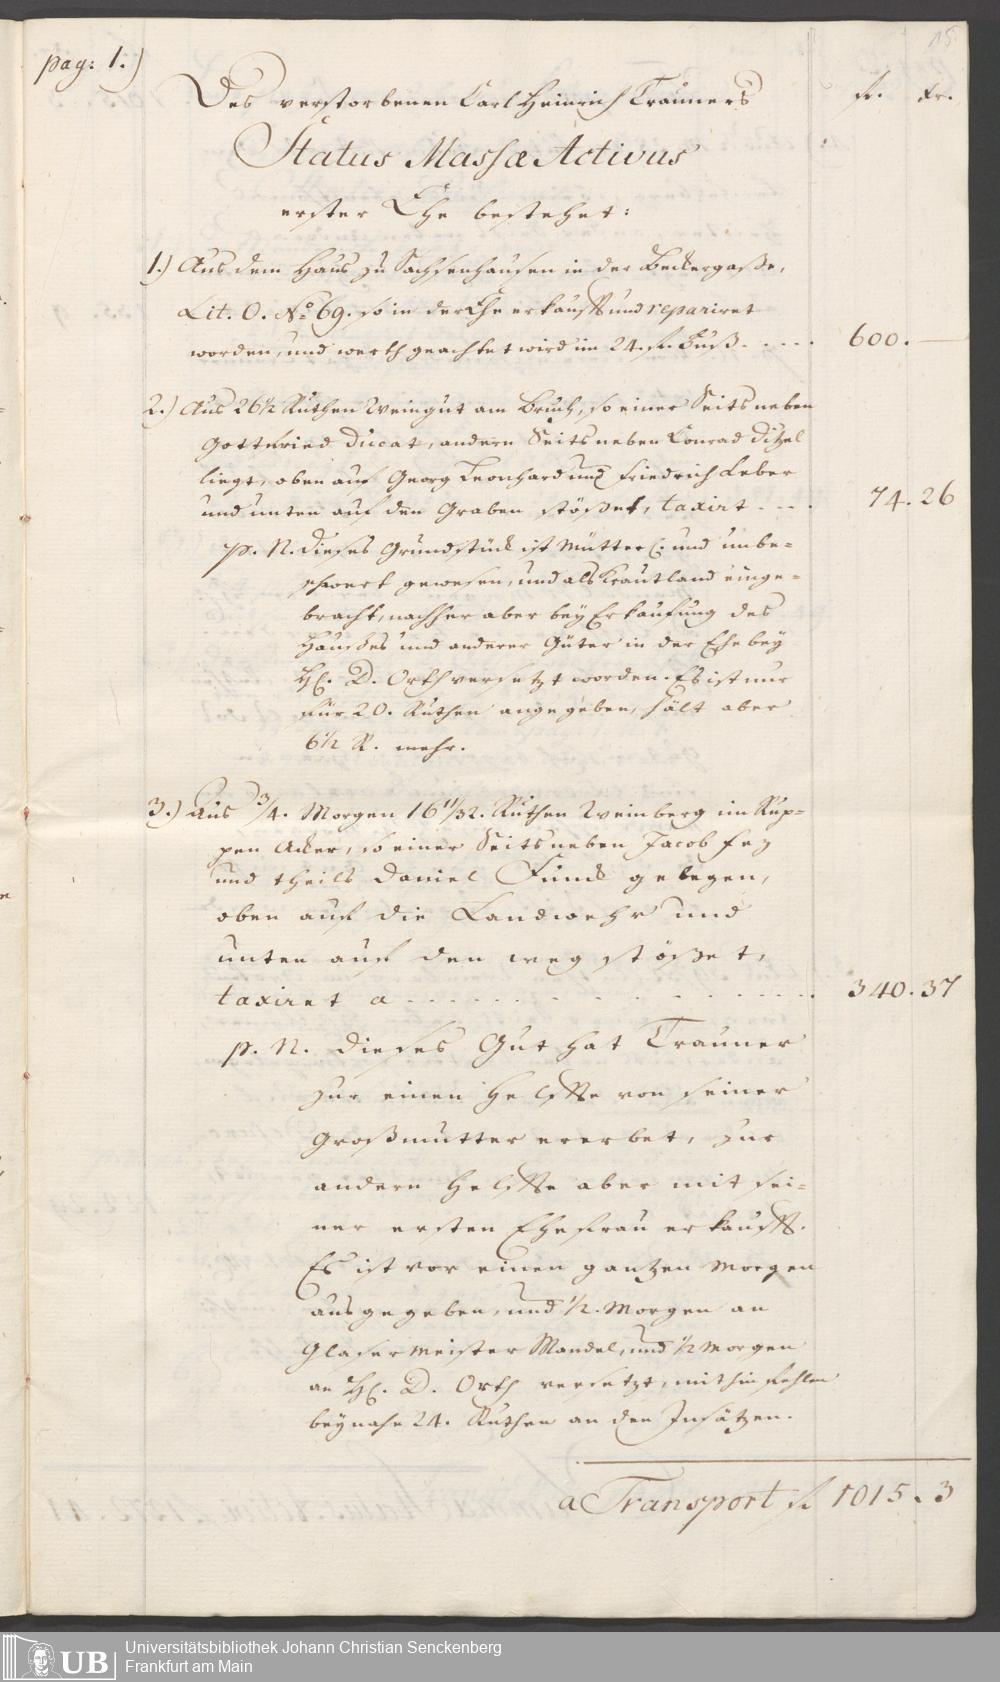 15
pag: 1.)
Des verstorbenen Carl Heinrich Trauners
fl. Xr.
Status Massæ Activus
erster Ehe bestehet:
1.) Aus dem Haus zu Sachsenhausen in der Beckergaße,
Lit. O. No. 69. so in der Ehe erkaufft und repariret
worden, und werth geachtet wird im 24. fl. Fuß . . . . . 600. —
2.) Aus 26 1/2 Ruthen Weingut am Bruch, so einer Seits neben
Gottfried Ducat, andern Seits neben Conrad Ditzel
liegt, oben auf Georg Leonhard und Friedrich Leber
und unten auf den Graben stößet, taxirt . . . . 74. 26
p. N. dieses Grundstück ist Mütterl: und unbe-
schwert gewesen, und als Krautland einge-
bracht, nachher aber bey Erkaufung des
Haußes und anderer Güter in der Ehe bey
H. D. Orth versetzt worden. Es ist nur
für 20. Ruthen angegeben, hält aber
6 1/2 R. mehr.
3.) Aus 3/4. Morgen 16 11/32. Ruthen Weinberg im Rup-
pen Acker, so einer Seits neben Jacob Fez
und theils Daniel Funck gelegen,
oben auf die Landwehr und
unten auf den weg stößet,
taxiret a . . . . . . . . . . . . 340. 37
p. N. dieses Gut hat Trauner
zur einen Helffte von seiner
Großmutter ererbet, zur
andern Helffte aber mit sei-
ner ersten Ehefrau erkaufft.
Es ist vor einen gantzen Morgen
ausgegeben, und 1/2. Morgen an
Glasermeister Mandel, und 1/2 Morgen
an H. D. Orth versetzt, mithin fehlen
beynahe 24. Ruthen an den Insätzen.
a Transport fl 1015. 3
UB
Universitätsbibliothek Johann Christian Senckenberg
Frankfurt am Main